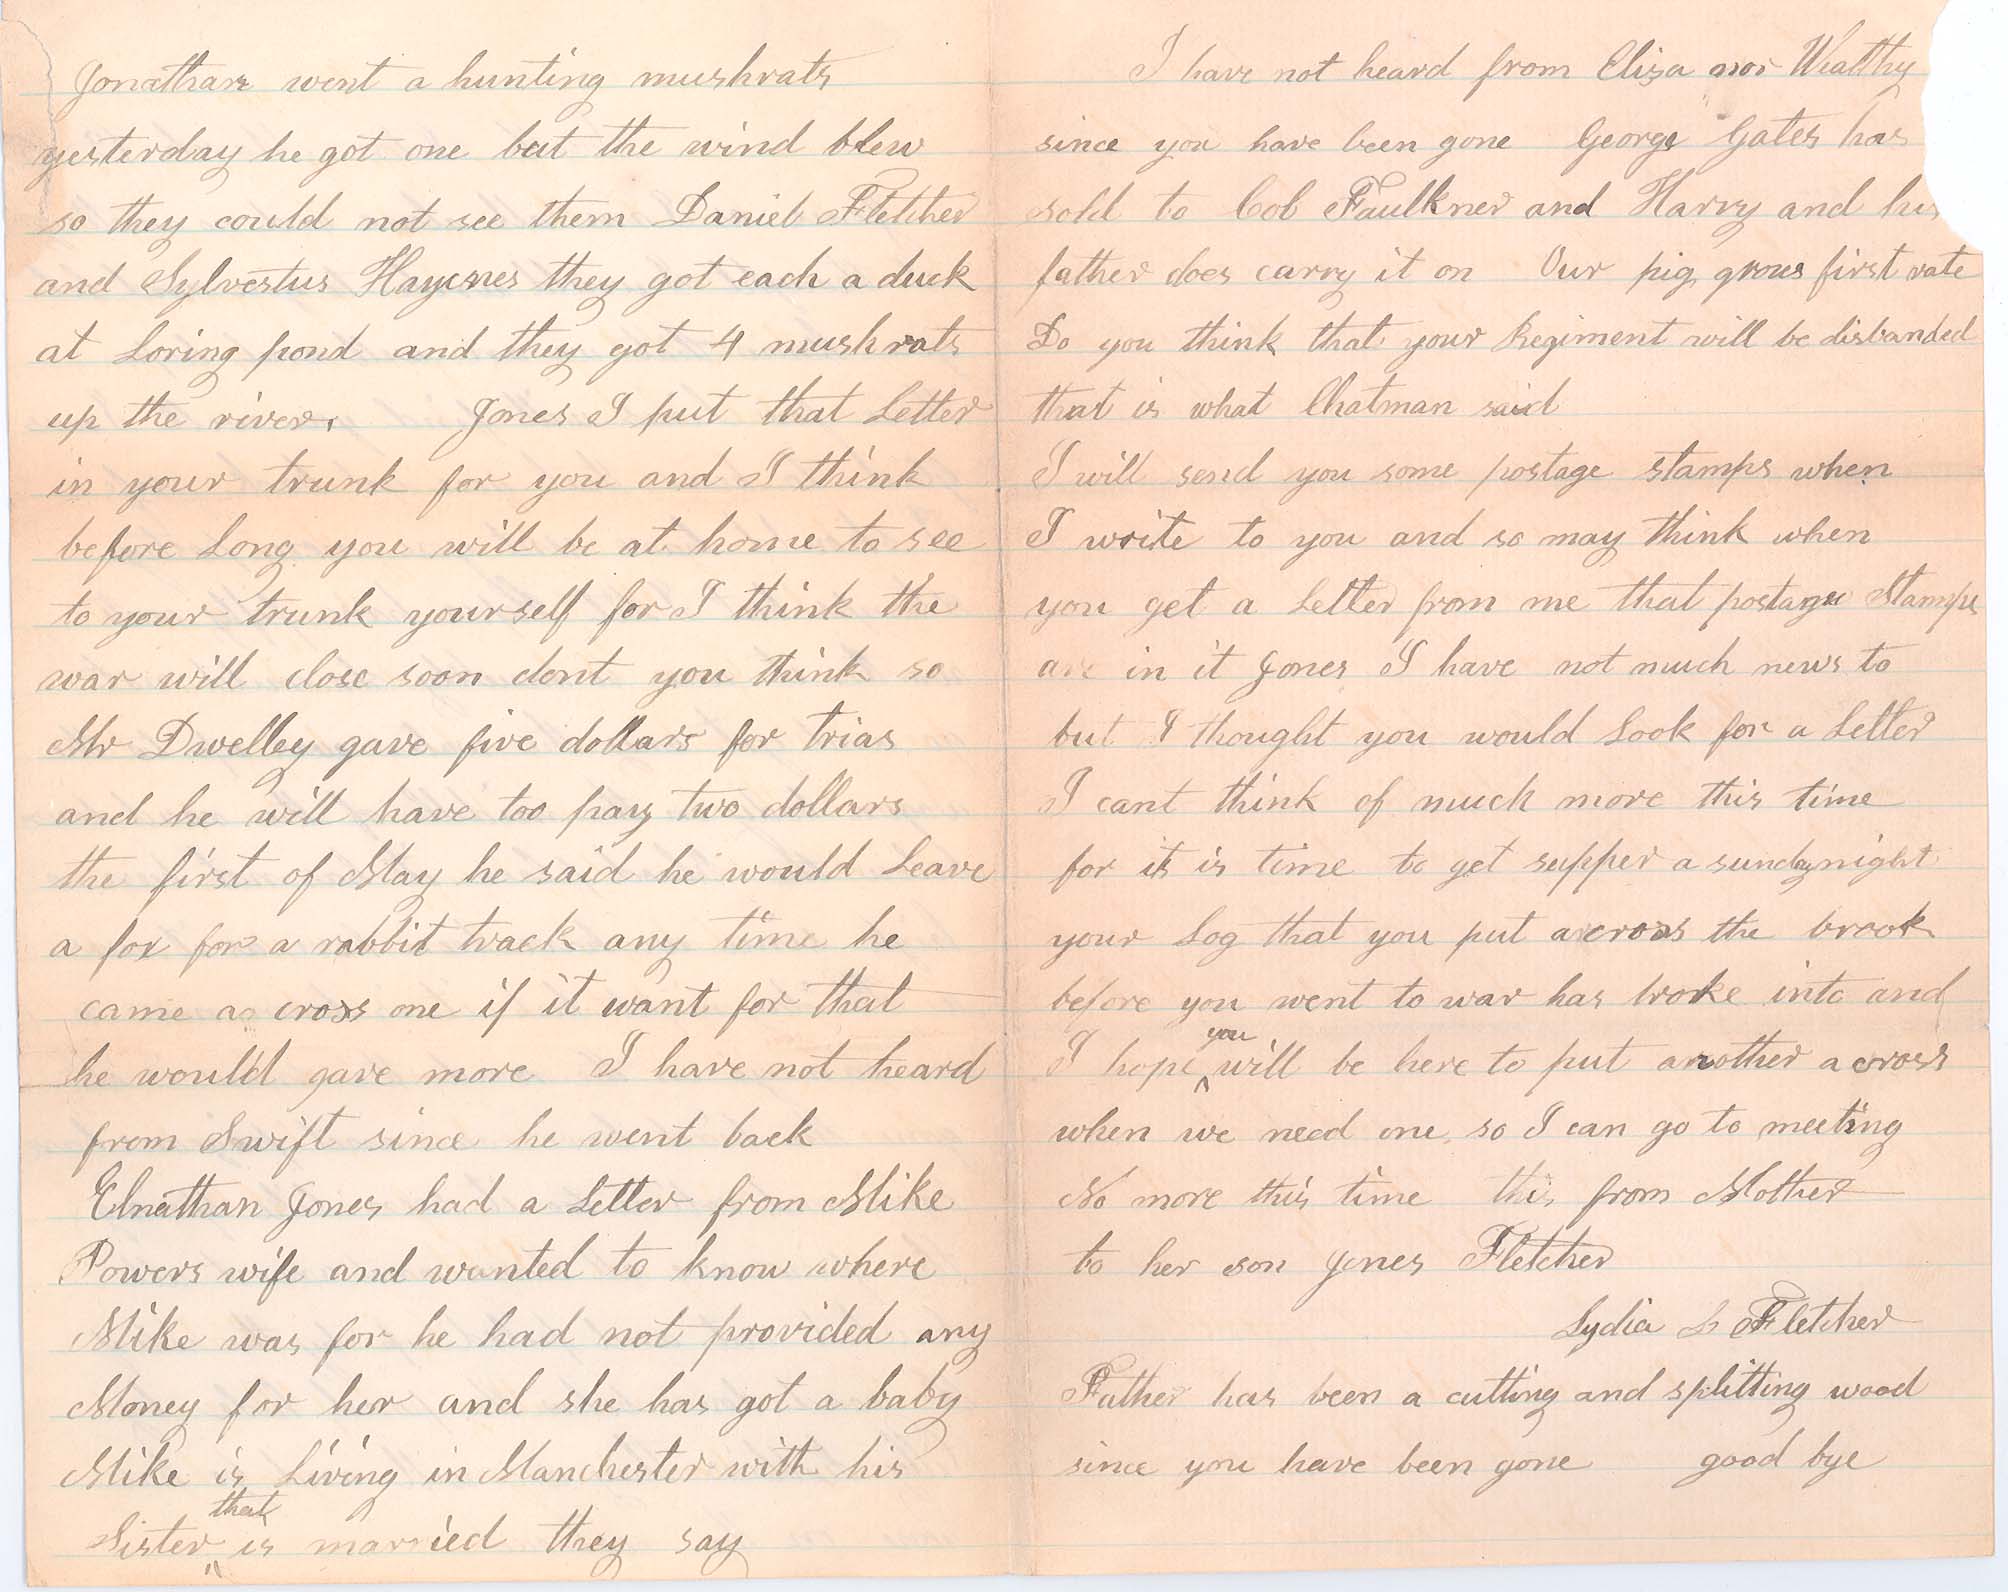 Jonathan went a hunting mushrats
yesterday he got one but the wind blew
so they could not see them Daniel Fletcher
and Sylvestus Haynes they got each a duck
at Loring pond and they got 4 mushrats
up the river. Jones I put that Letter
in your trunk for you and I think
before Long you will be at home to see
to your trunk yourself for I think the
war will close soon dont you think so
Mr Dwelley gave five dollars for trias
and he will have too pay two dollars
the first of May he said he would Leave
a fox for a rabbit track any time he
came a cross one if it want for that
he would gave more I have not heard
from Swift since he went back
Elnathan Jones had a Letter from Mike
Powers wife and wanted to know where
Mike was for he had not provided any
Money for her and she has got a baby
Mike is Living in Manchester with his
Sister that is married they say
I have not heard from Eliza nor Wealthy
since you have been gone George Gates has
sold to Col Faulkner and Harry and his
father does carry it on Our pig grous first rate
Do you think that your Regiment will be disbanded
that is what Chatman said
I will send you some postage stamps when
I write to you and so may think when
you get a Letter from me that postage Stamps
are in it Jones I have not much news to
but I thought you would Look for a Letter
I cant think of much more this time
for it is time to get supper a sunday night
your Log that you put across the brook
before you went to war has broke into and
I hope you will be here to put another a cross
when we need one so I can go to meeting
No more this time this from Mother
to her son Jones Fletcher
Lydia L Fletcher
Father has been a cutting and splitting wood
since you have been gone good bye